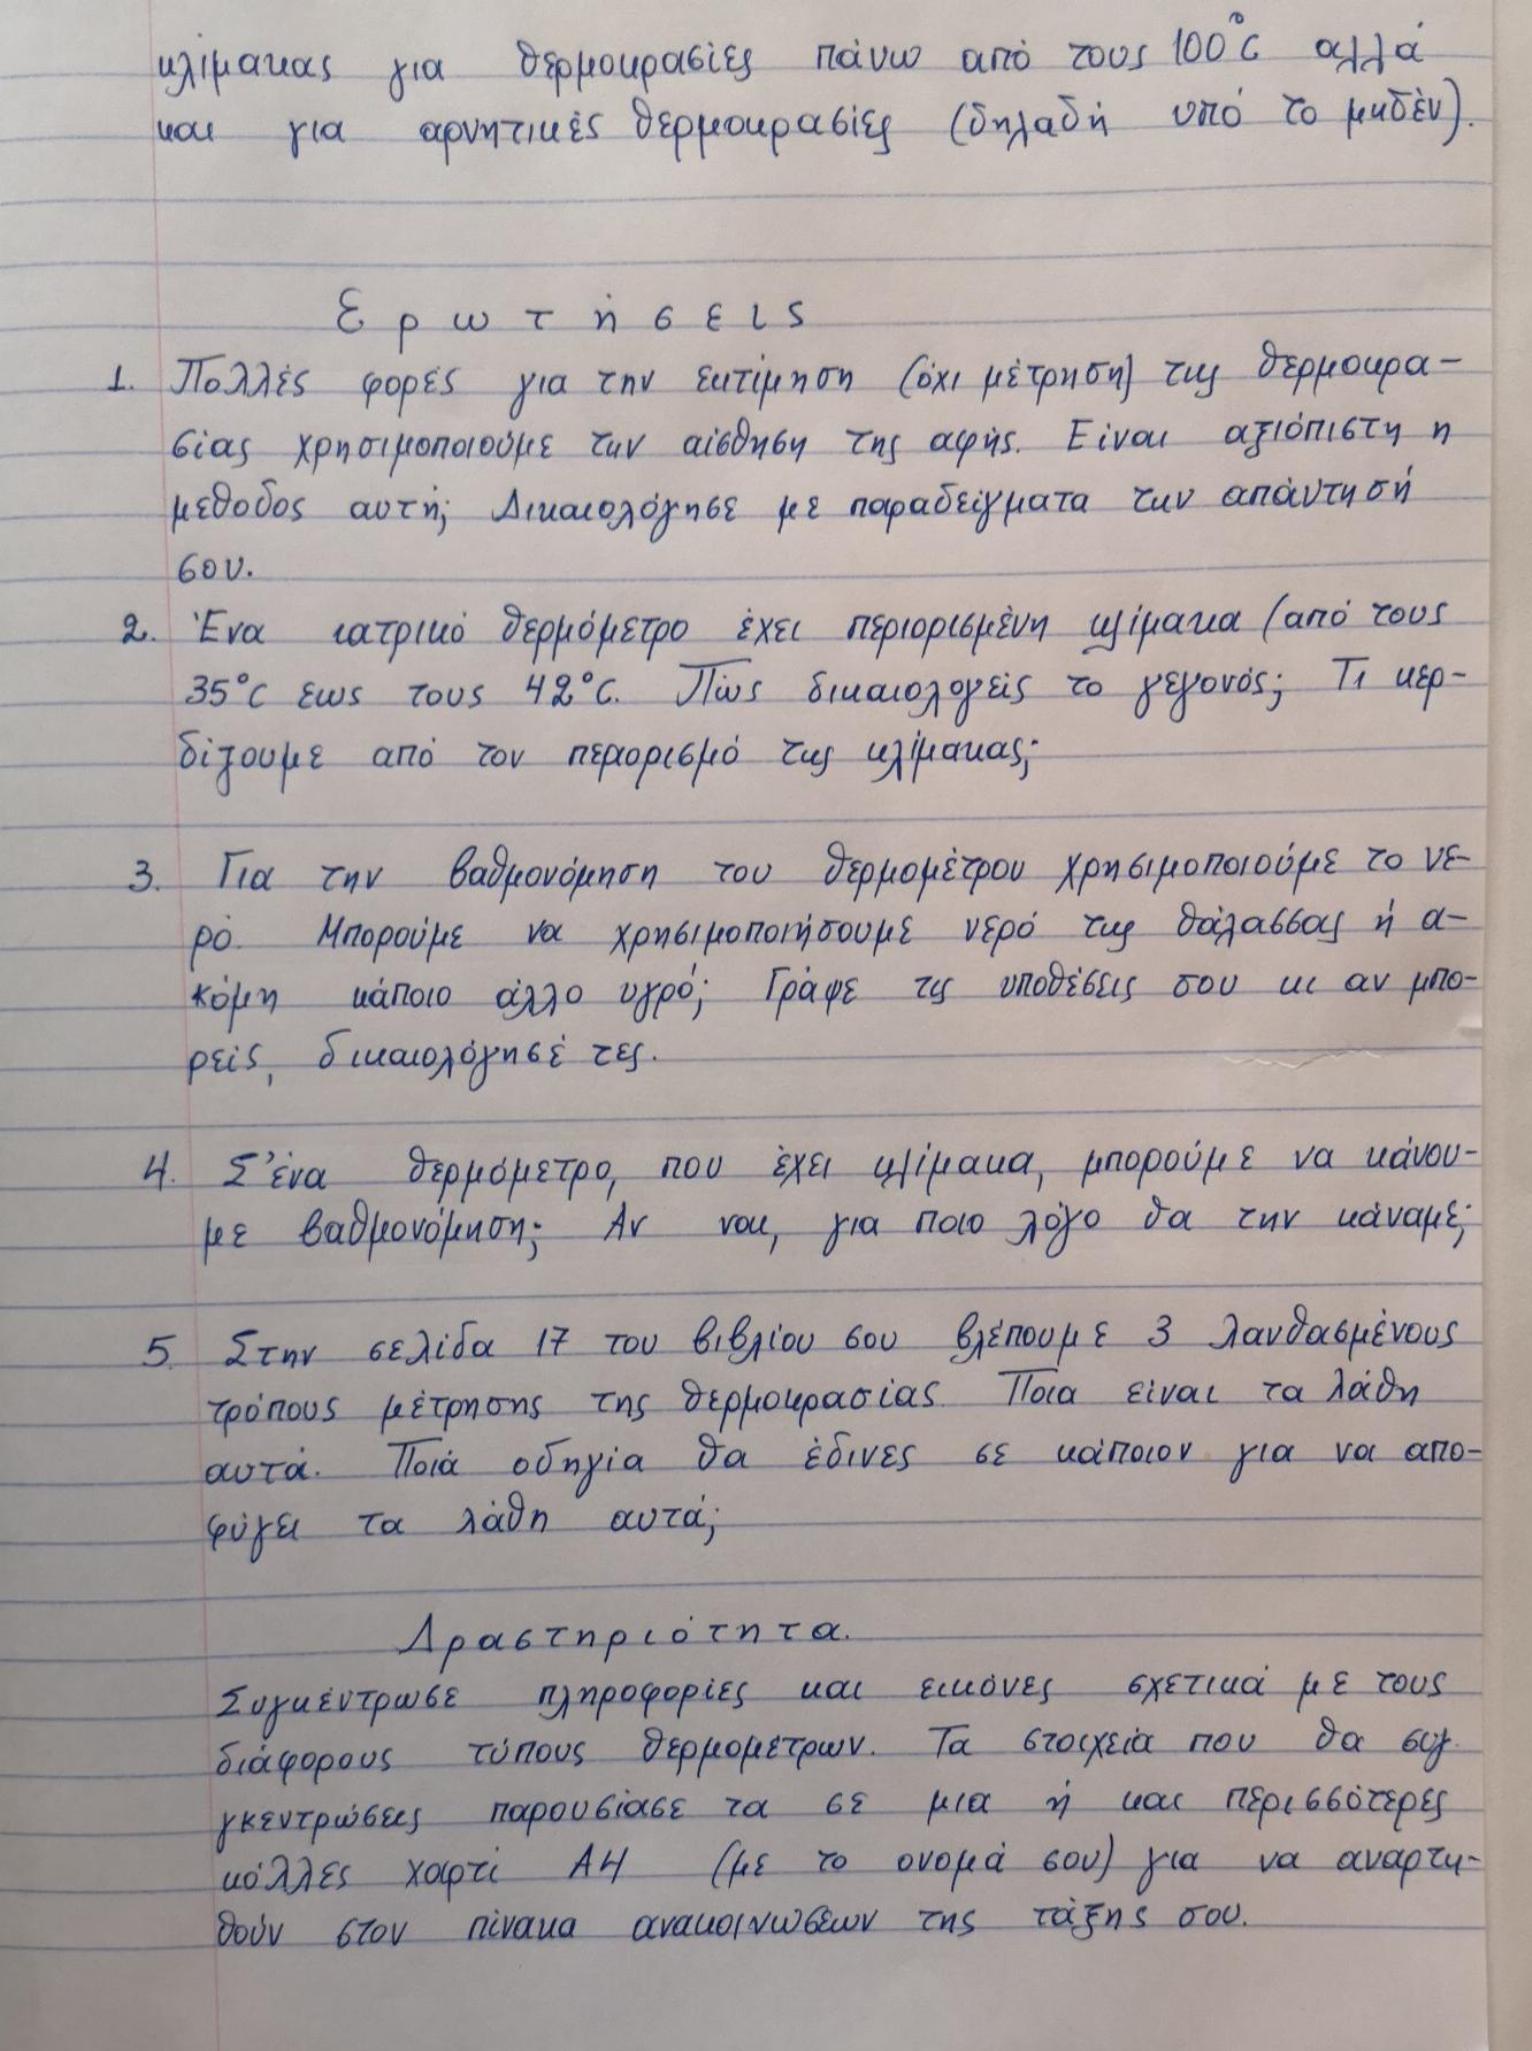 κλίμακας για θερμοκρασίες πάνω από τους 100°C αλλά
και για αρνητικές θερμοκρασίες (δηλαδή υπό το μηδέν).
Ερωτήσεις
1. Πολλές φορές για την εκτίμηση (όχι μέτρηση) της θερμοκρα-
σίας χρησιμοποιούμε την αίσθηση της αφής. Είναι αξιόπιστη η
μέθοδος αυτή; Δικαιολόγησε με παραδείγματα την απάντησή
σου.
2. Ένα ιατρικό θερμόμετρο έχει περιορισμένη κλίμακα (από τους
35°C εως τους 42°C. Πώς δικαιολογείς το γεγονός; Τι κερ-
δίζουμε από τον περιορισμό της κλίμακας;
3. Για την βαθμονόμηση του θερμομέτρου χρησιμοποιούμε το νε-
ρό. Μπορούμε να χρησιμοποιήσουμε νερό της θάλασσας ή α-
κόμη κάποιο άλλο υγρό; Γράψε τις υποθέσεις σου κι αν μπο-
ρείς, δικαιολόγησέ τες.
4. Σ'ένα θερμόμετρο, που έχει κλίμακα, μπορούμε να κάνου-
με βαθμονόμηση; Αν ναι, για ποιο λόγο θα την κάναμε;
5. Στην σελίδα 17 του βιβλίου σου βλέπουμε 3 λανθασμένους
τρόπους μέτρησης της θερμοκρασίας. Ποια είναι τα λάθη
αυτά. Ποιά οδηγία θα έδινες σε κάποιον για να απο-
φύγει τα λάθη αυτά;
Δραστηριότητα.
Συγκέντρωσε πληροφορίες και εικόνες σχετικά με τους
διάφορους τύπους θερμομέτρων. Τα στοιχεία που θα συγ-
γκεντρώσεις παρουσίασε τα σε μια ή και περισσότερες
κόλλες χαρτί Α4 (με το ονομά σου) για να αναρτη-
θούν στον πίνακα ανακοινώσεων της τάξης σου.